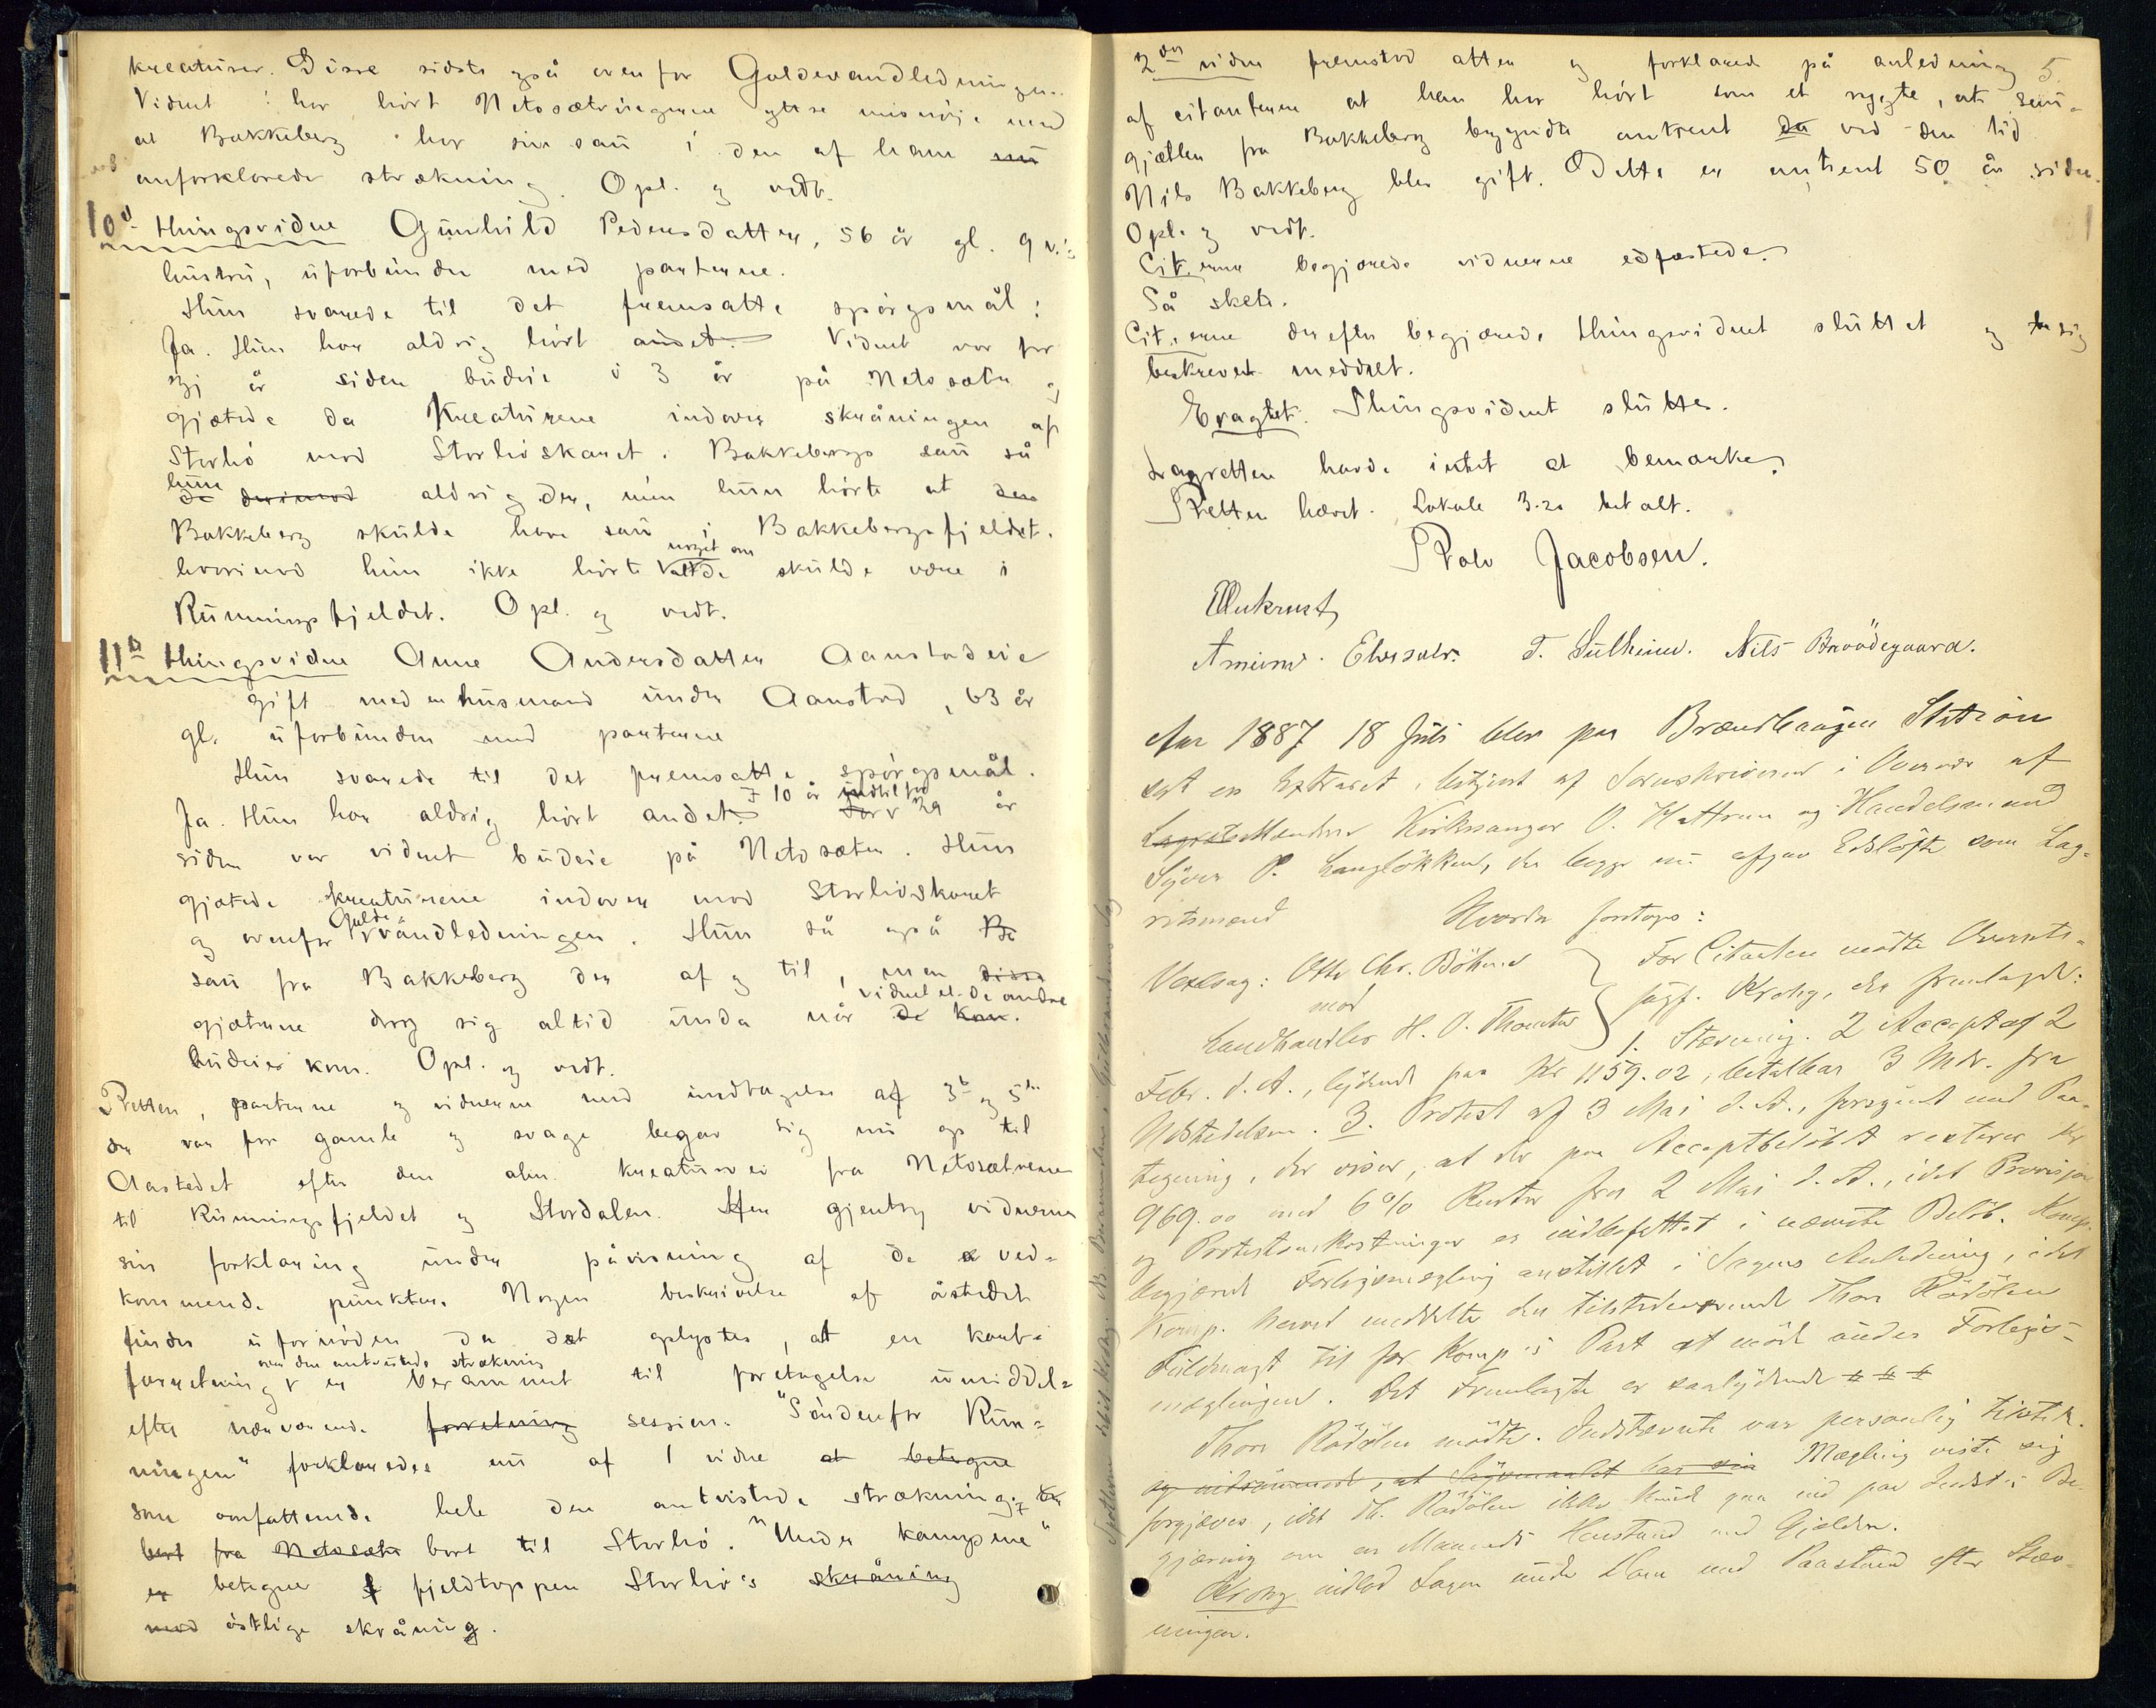 kreaturer. Disse sidste også ovenfor Guldevandledningen.
Vidnet har hört Netosætringerne ytre misnöie med
at Bakkeberg har sin sau i den af ham nu
omforklarede strækning. Opl. og vedt.
10d thingsvidne Gunhild Pedersdatter, 56 år gl. gv.s
hustru, uforbunden med parterne.
Hun svarede til det fremsatte spörgsmål:
Ja. Hun har aldrig hört andet. Vidnet var for
år siden budeie i 3 år på Netosæter og
gjætede da Kreaturene indover skråningen af
Storhö mod Storhöskaret. Bakkebergs sau så
hun
de derimod aldrig der, men hun hörte at den
Bakkeberg skulde have sau i Bakkebergsfjeldet.
noget om
hvorimod hun ikke hörte skulde være i
Runningsfjeldet. Opl. og vedt.
11te thingsvidne Anne Andersdatter Aanstadeie
gift med en husmand under Aanstad, 63 år
gl. uforbunden med parterne
Hun svarede til det fremsatte spörgsmål.
I 10 år indtil for
Ja. Hun har aldrig hört andet. For 29 år
siden var vidnet budeie på Netosæter. Hun
gjætede kreaturene indover mod Storhöskaret
Gulde
og ovenfor vandledningen. Hun så også Ba
sau fra Bakkeberg der af og til, men disse
vidnet el. de andre
gjæterne drog sig altid unda når de kom.
budeier kom. Opl. og vedt.
Retten, parterne og vidnerne med undtagelse af 3de og 5te
der var for gamle og svage begav sig nu op til
Aastedet efter den alm. kreaturvei fra Netosætrene
til Runningsfjeldet og Stordalen. Her gjentog vidnerne
sin forklaring under påvisning af de ved-
kommende punkter. Nogen beskrivelse af åstedet
findes ufornöden da det oplystes, at en kart-
over den omtvistede strækning
forretning er berammet til foretagelse umiddel-
efter nærværende forretning session. "Söndenfor Run-
ningen" forklaredes nu af 1 vidne at betegne
som omfattende hele den omtvistede strækning
bort fra Netosæter bort til Storhö. "Under kampene"
er betegner fjeldtoppen Storhö's skråning
mod östlige skråning.
2det vidne fremstod atter og forklarede på anledning 5.
af citanterne at han har hört som et rygte, at sau-
gjætten fra Bakkeberg begyndte omtrent da ved den tid
Nils Bakkeberg blev gift. Dette er omtrent 50 år siden.
Opl. og vedt.
Cit.erne begjærede vidnerne edfæstede.
Så skete.
Cit.erne derefter begjærede thingsvidnet sluttet og sig
beskrevet meddelt.
Eragtet: Thingsvidnet sluttes.
Lagretten havde intet at bemærke.
Retten hævet. Lokale 3.20 betalt.
Rolv Jacobsen.
Amund Elvesæter. T. Sulheim. Nils Brovdegaard.
Aar 1887 18 Juli blev paa Brændhaugen Station
sat en Extraret, betjent af Sorenskriveren i Overvær af
Lagrettesmændene Kirkesanger O. Hattrem og Handelsmand
Syver P. Langlökken, der begge nu afgav Edslöfte som Lag-
retsmænd
Hvorda foretoges:
Vexelsag: Otto Chr. Böhmer
mod
Landhandler H. O. Thomter
For Citanten mödte Overrets-
sagf. Krohg, der fremlagde:
1. Stævning. 2 Accept af 2
Febr. d. A., lydende paa Kr 1159.02, betalbar 3 Mdr. fra
Udstedelsen. 3. Protest af 3 Mai d. A., forsynet med Paa-
tegning, der viser, at der paa Acceptbelöbet resterer Kr
969.00 med 6% Renter fra 2 Mai d. A., idet Provision
og Protestomkostninger er indbefattet i nævnte Belöb. Komp.
begjærede Forligsmægling anstillet i Sagens Anledning, idet
Komp. herved meddelte den tilstedeværende Thor Rödölen
Fuldmagt til for Komp's Part at möde under Forligs-
mæglingen. Det Fremlagte er saalydende # # #
Thor Rödölen mödte. Indstævnte var personlig tilstede.
Mægling viste sig
forgjæves, idet Th. Rödölen ikke kunde gaa ind paa Indst.s Be-
gjæring om en Maaneds Henstand med Gjælden.
Krohg indlod Sagen under Dom med Paastand efter Stæv-
ningen.